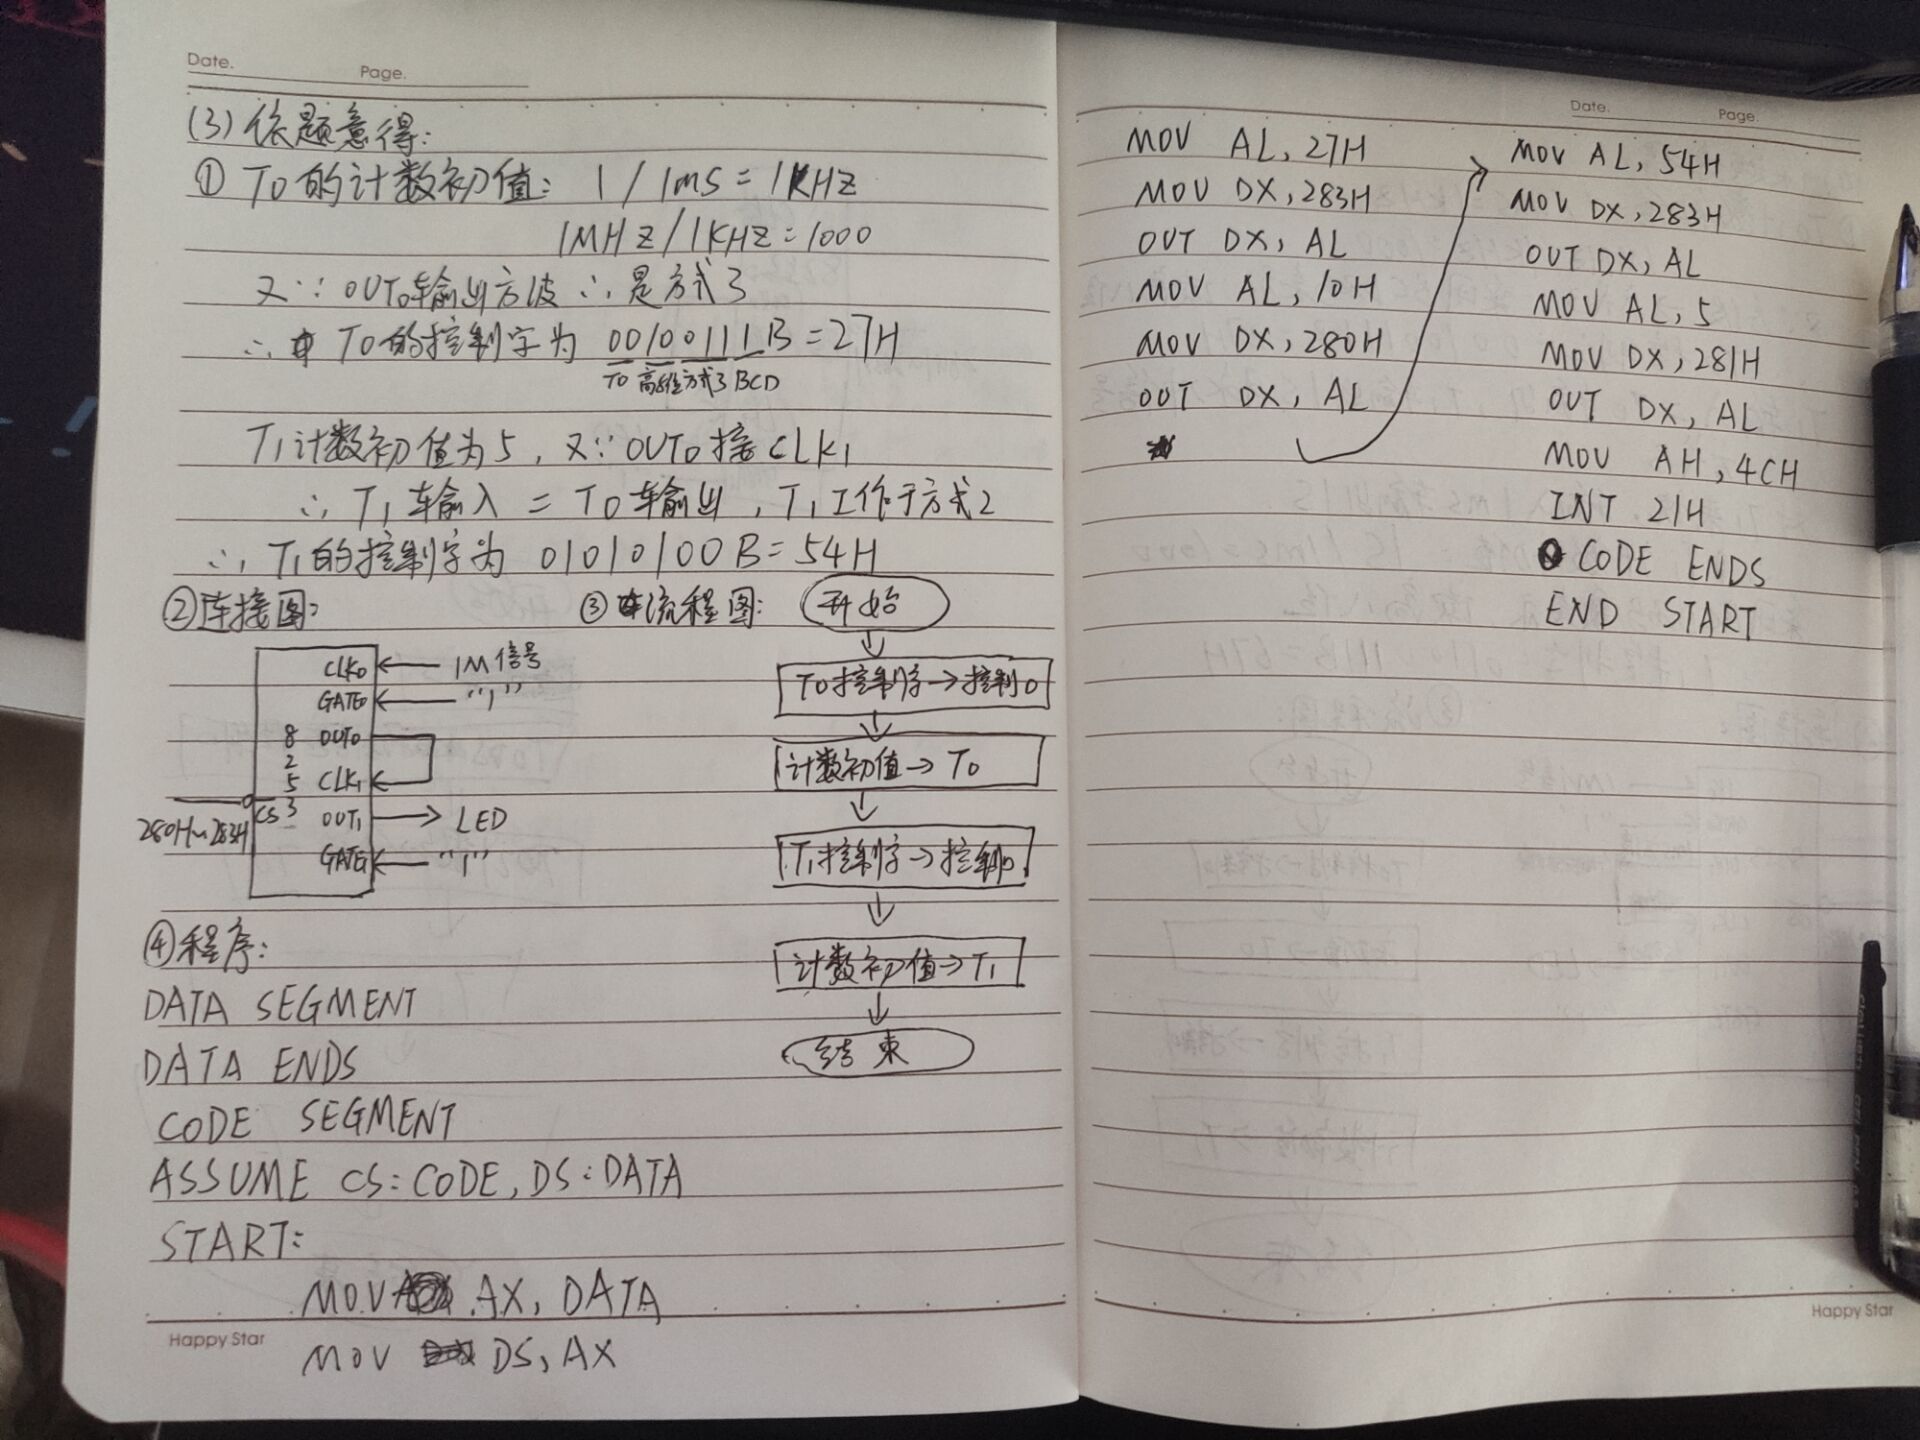 Date.
Page.
(3) 依题意得:
① T0的计数初值: 1 / 1ms = 1KHZ
1MHZ/1KHZ=1000
又∵ OUT0输出方波 ∴ 是方式3
∴ T0的控制字为 00100111B=27H
T0 高8位 方式3 BCD
T1计数初值为5, 又∵ OUT0接CLK1
∴ T1输入 = T0输出, T1工作于方式2
∴ T1的控制字为 01010100B=54H
②连接图:
CLK0 1M信号
GATE0 "1"
8 OUT0
2
5 CLK1
3
CS OUT1 LED
280H~283H
GATE1 "1"
③流程图:
开始
T0控制字→控制口
计数初值→T0
T1控制字→控制口
计数初值→T1
结束
④程序:
DATA SEGMENT
DATA ENDS
CODE SEGMENT
ASSUME CS:CODE, DS:DATA
START:
MOV AX, DATA
MOV DS, AX
Happy Star
MOV AL, 27H
MOV DX, 283H
OUT DX, AL
MOV AL, 10H
MOV DX, 280H
OUT DX, AL
Date.
Page.
MOV AL, 54H
MOV DX, 283H
OUT DX, AL
MOV AL, 5
MOV DX, 281H
OUT DX, AL
MOV AH, 4CH
INT 21H
CODE ENDS
END START
Happy Star